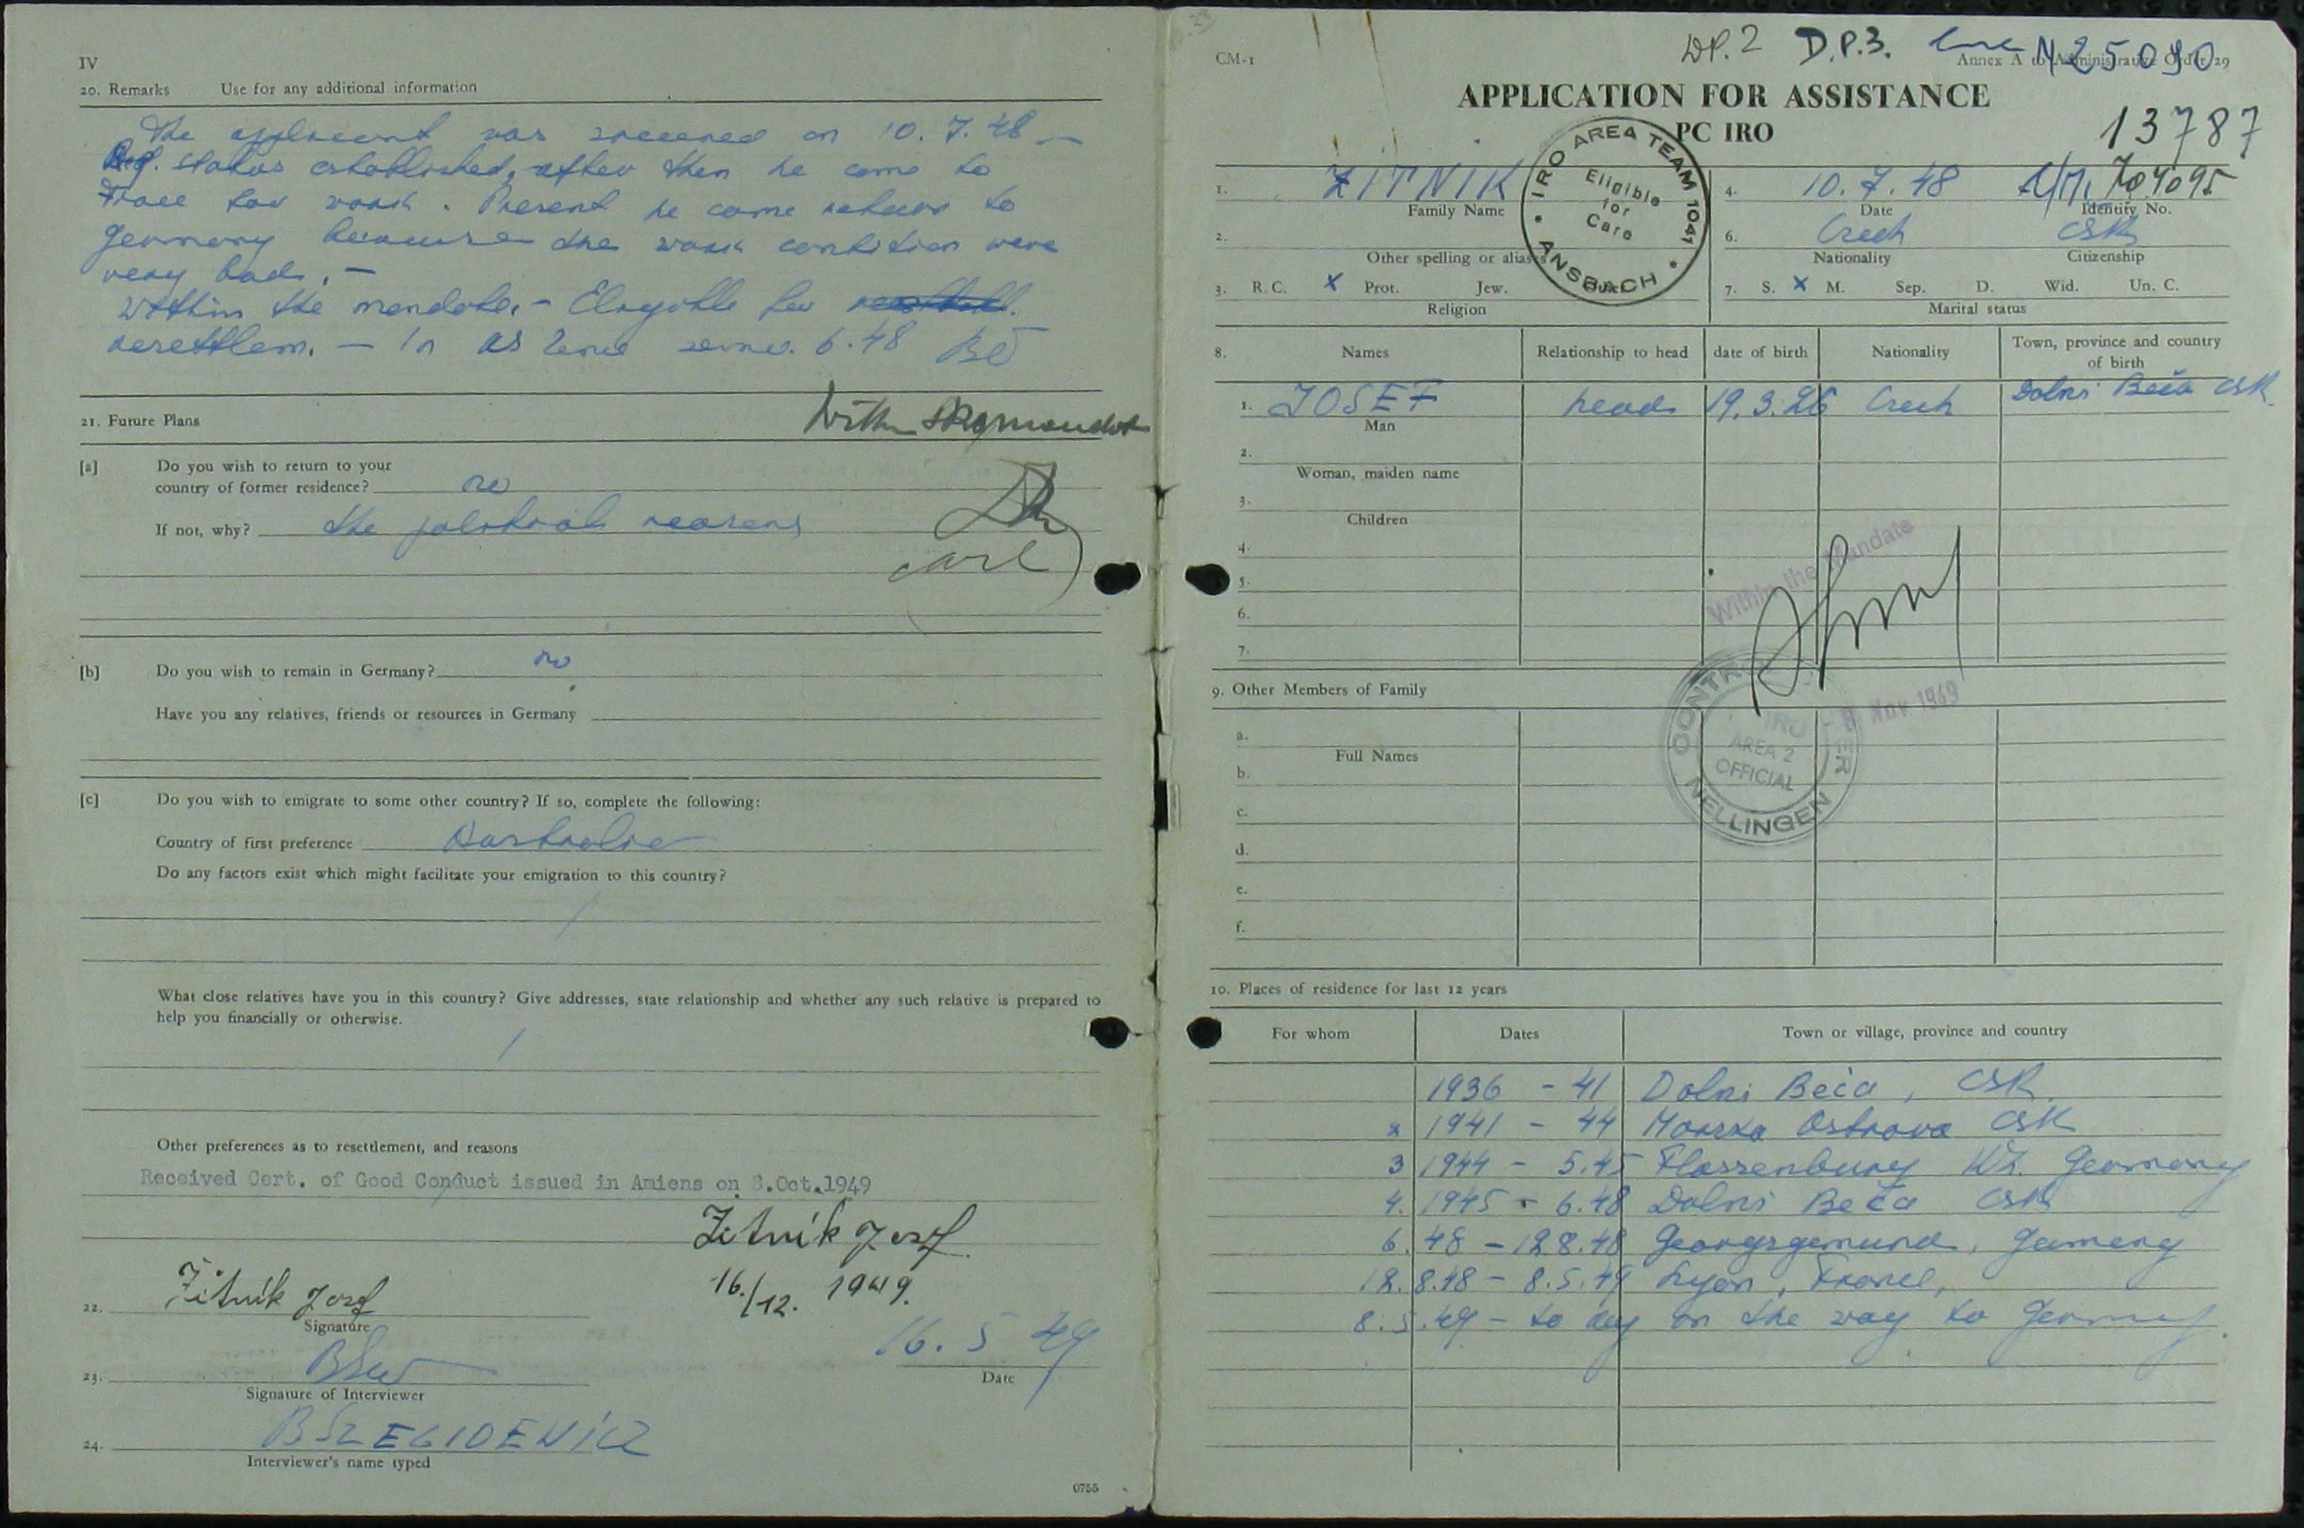 IV
20. Remarks Use for any additional information
The applicant was screened on 10. 7. 48 —
Ref. status established, after then he come to
France for work. Present he came return to
Germany because the work condition were
very bad. —
Within the mandate. — Eligible for
resettlem. — In as zone since 6.48
21. Future Plans
Within the mandate
[a] Do you wish to return to your
country of former residence? no
If not, why? the political reasons
[b] Do you wish to remain in Germany? no
Have you any relatives, friends or resources in Germany
[c] Do you wish to emigrate to some other country? If so, complete the following:
Country of first preference Australia
Do any factors exist which might facilitate your emigration to this country?
/
What close relatives have you in this country? Give addresses, state relationship and whether any such relative is prepared to
help you financially or otherwise.
/
Other preferences as to resettlement, and reasons
Received Cert. of Good Conduct issued in Amiens on 8.Oct.1949
Žitnik Josef
16./12. 1949.
22. Žitnik Josef
Signature
16. 5 49
Date
23.
Signature of Interviewer
24. B SZEGIDEWICZ
Interviewer's name typed
0755
CM-1
DP.2 D.P.3. N25090
Annex A to Administrative Order 29
APPLICATION FOR ASSISTANCE
PC IRO
13787
IRO AREA TEAM 1041 * ANSBACH *
Eligible
for
Care
1. ŽITNIK
Family Name
4. 10. 7. 48
Date
704095
Identity No.
2.
Other spelling or aliases
6. Czech
Nationality
CSR
Citizenship
3. R.C. x Prot. Jew.
Religion
7. S. x M. Sep. D. Wid. Un. C.
Marital status
8. Names Relationship to head date of birth Nationality Town, province and country
of birth
1. JOSEF head 19. 3. 26 Czech Dolni Beča CSR.
Man
2.
Woman, maiden name
3.
Children
4.
5.
6.
7.
Within the Mandate
9. Other Members of Family
CONTROL CENTER NELLINGEN
IRO
AREA 2
OFFICIAL
Nov 1949
a.
Full Names
b.
c.
d.
e.
f.
10. Places of residence for last 12 years
For whom Dates Town or village, province and country
1936 - 41 Dolni Beča, CSR.
x 1941 - 44 Morska Ostrava CSR
3 1944 - 5.45 Flossenburg KZ. Germany
4. 1945 - 6.48 Dolni Beča CSR
6. 48 - 12 8.48 Georgsgemund, Germany
12. 8.48 - 8.5.49 Lyon, France,
8. 5. 49 - to day on the way to Germany.